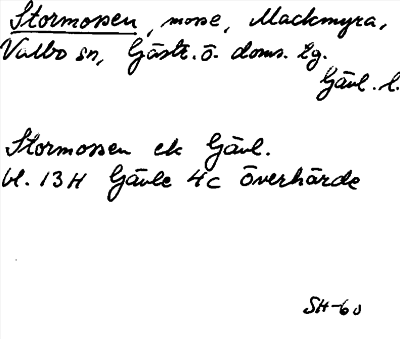 Stormossen, mosse, Mackmyra,
Valbo sn, Gästr. ö. doms. lg.
Gävl. l.
Stormossen ek Gävl.
bl. 13H Gävle 4c Överhärde
SH-60